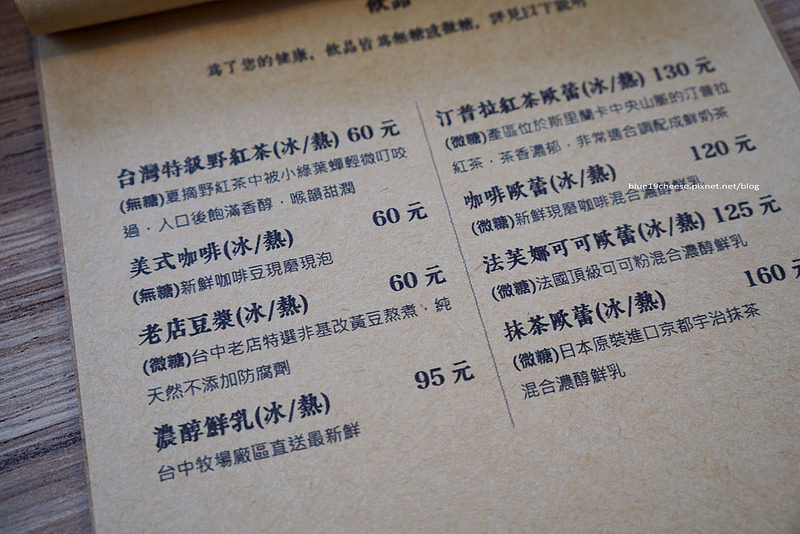 飲品
為了您的健康，飲品皆為無糖或微糖，詳見以下說明
台灣特級野紅茶(冰/熱) 60 元
(無糖)夏摘野紅茶中被小綠葉蟬輕微叮咬
過，入口後飽滿香醇，喉韻甜潤
60 元
美式咖啡(冰/熱)
(無糖)新鮮咖啡豆現磨現泡
60 元
老店豆漿(冰/熱)
(微糖)台中老店特選非基改黃豆熬煮，純
天然不添加防腐劑
95 元
濃醇鮮乳(冰/熱)
台中牧場廠區直送最新鮮
汀普拉紅茶歐蕾(冰/熱) 130 元
(微糖)產區位於斯里蘭卡中央山脈的汀普拉
紅茶，茶香濃郁，非常適合調配成鮮奶茶
120 元
咖啡歐蕾(冰/熱)
(微糖)新鮮現磨咖啡混合濃醇鮮乳
法芙娜可可歐蕾(冰/熱) 125 元
(微糖)法國頂級可可粉混合濃醇鮮乳
160 元
抹茶歐蕾(冰/熱)
(微糖)日本原裝進口京都宇治抹茶
混合濃醇鮮乳
blue19cheese.pixnet.net/blog